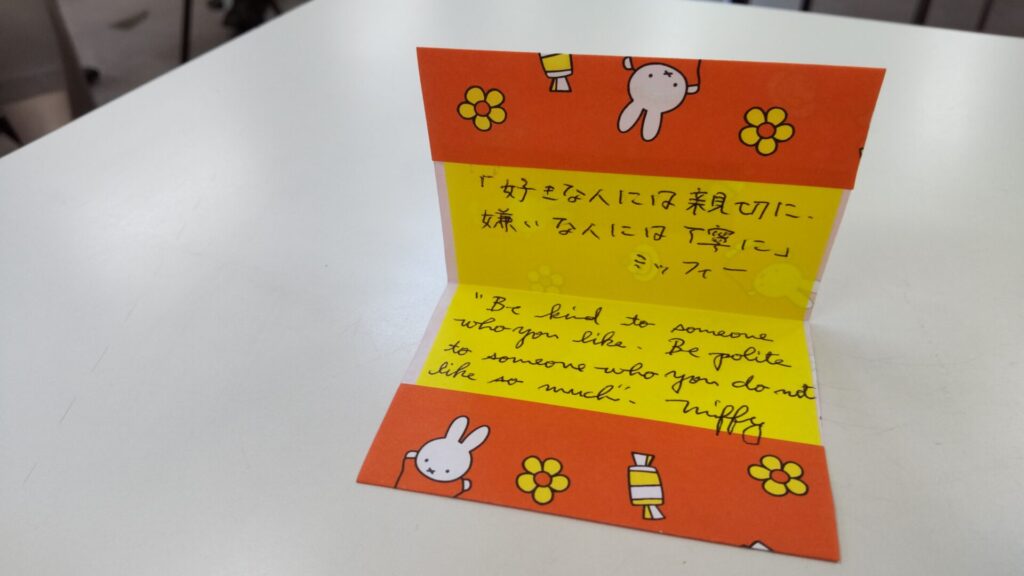 「好きな人には親切に、
嫌いな人には丁寧に」
ミッフィー
"Be kind to someone
who you like. Be polite
to someone who you do not
like so much". Miffy